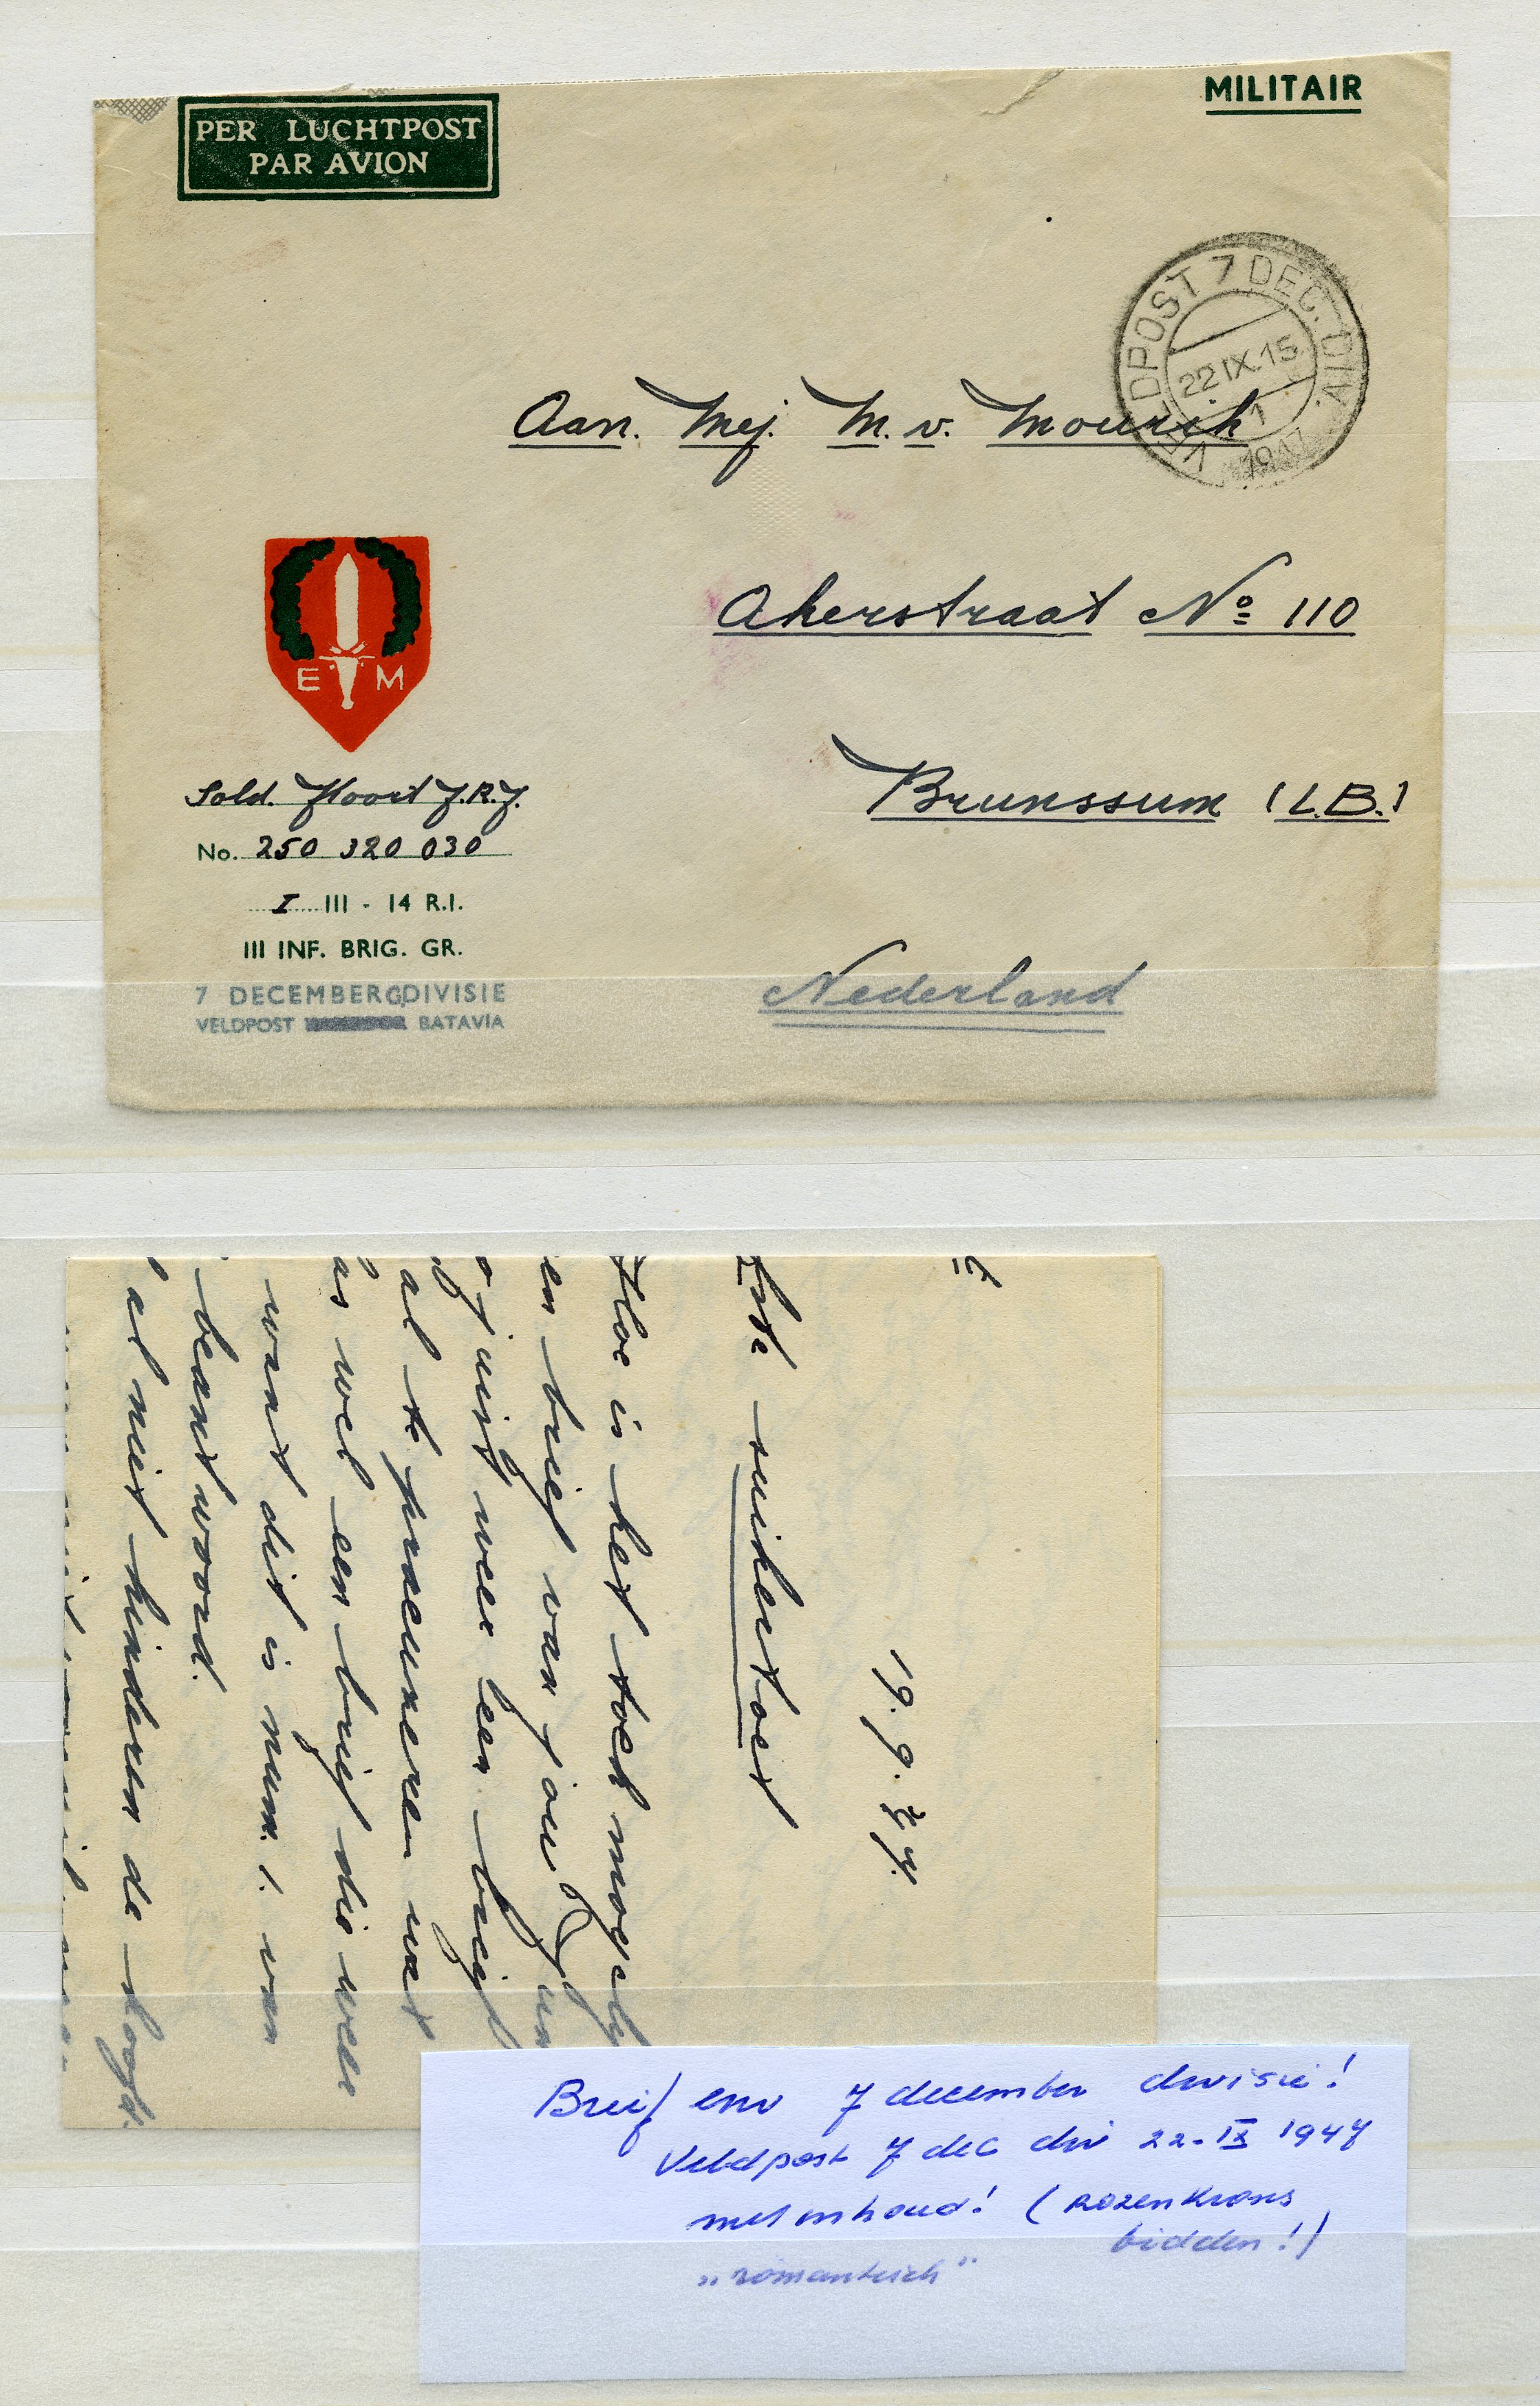 MILITAIR
PER LUCHTPOST
PAR AVION
VELDPOST 7 DEC. DIV.
22 IX.15
1
1947
Aan. Mej. M. v. Mourik
Akerstraat No 110
Brunssum (L.B.)
Nederland
E M
Sold. J.R.J.
No. 250 320 030
I III - 14 R.I.
III INF. BRIG. GR.
7 DECEMBER DIVISIE
VELDPOST BATAVIA
19.9.47.
suikertoet
Hoe is het toch mogelij
en brief van jou
juist weer een brief
al te
as wel een brief die
want dit is num. 1. van
beantwoord.
al niet hinderen de
Brief env 7 december divisie!
Veldpost 7 dec div 22-IX 1947
met inhoud! (Rozenkrans
bidden!)
"romantisch"